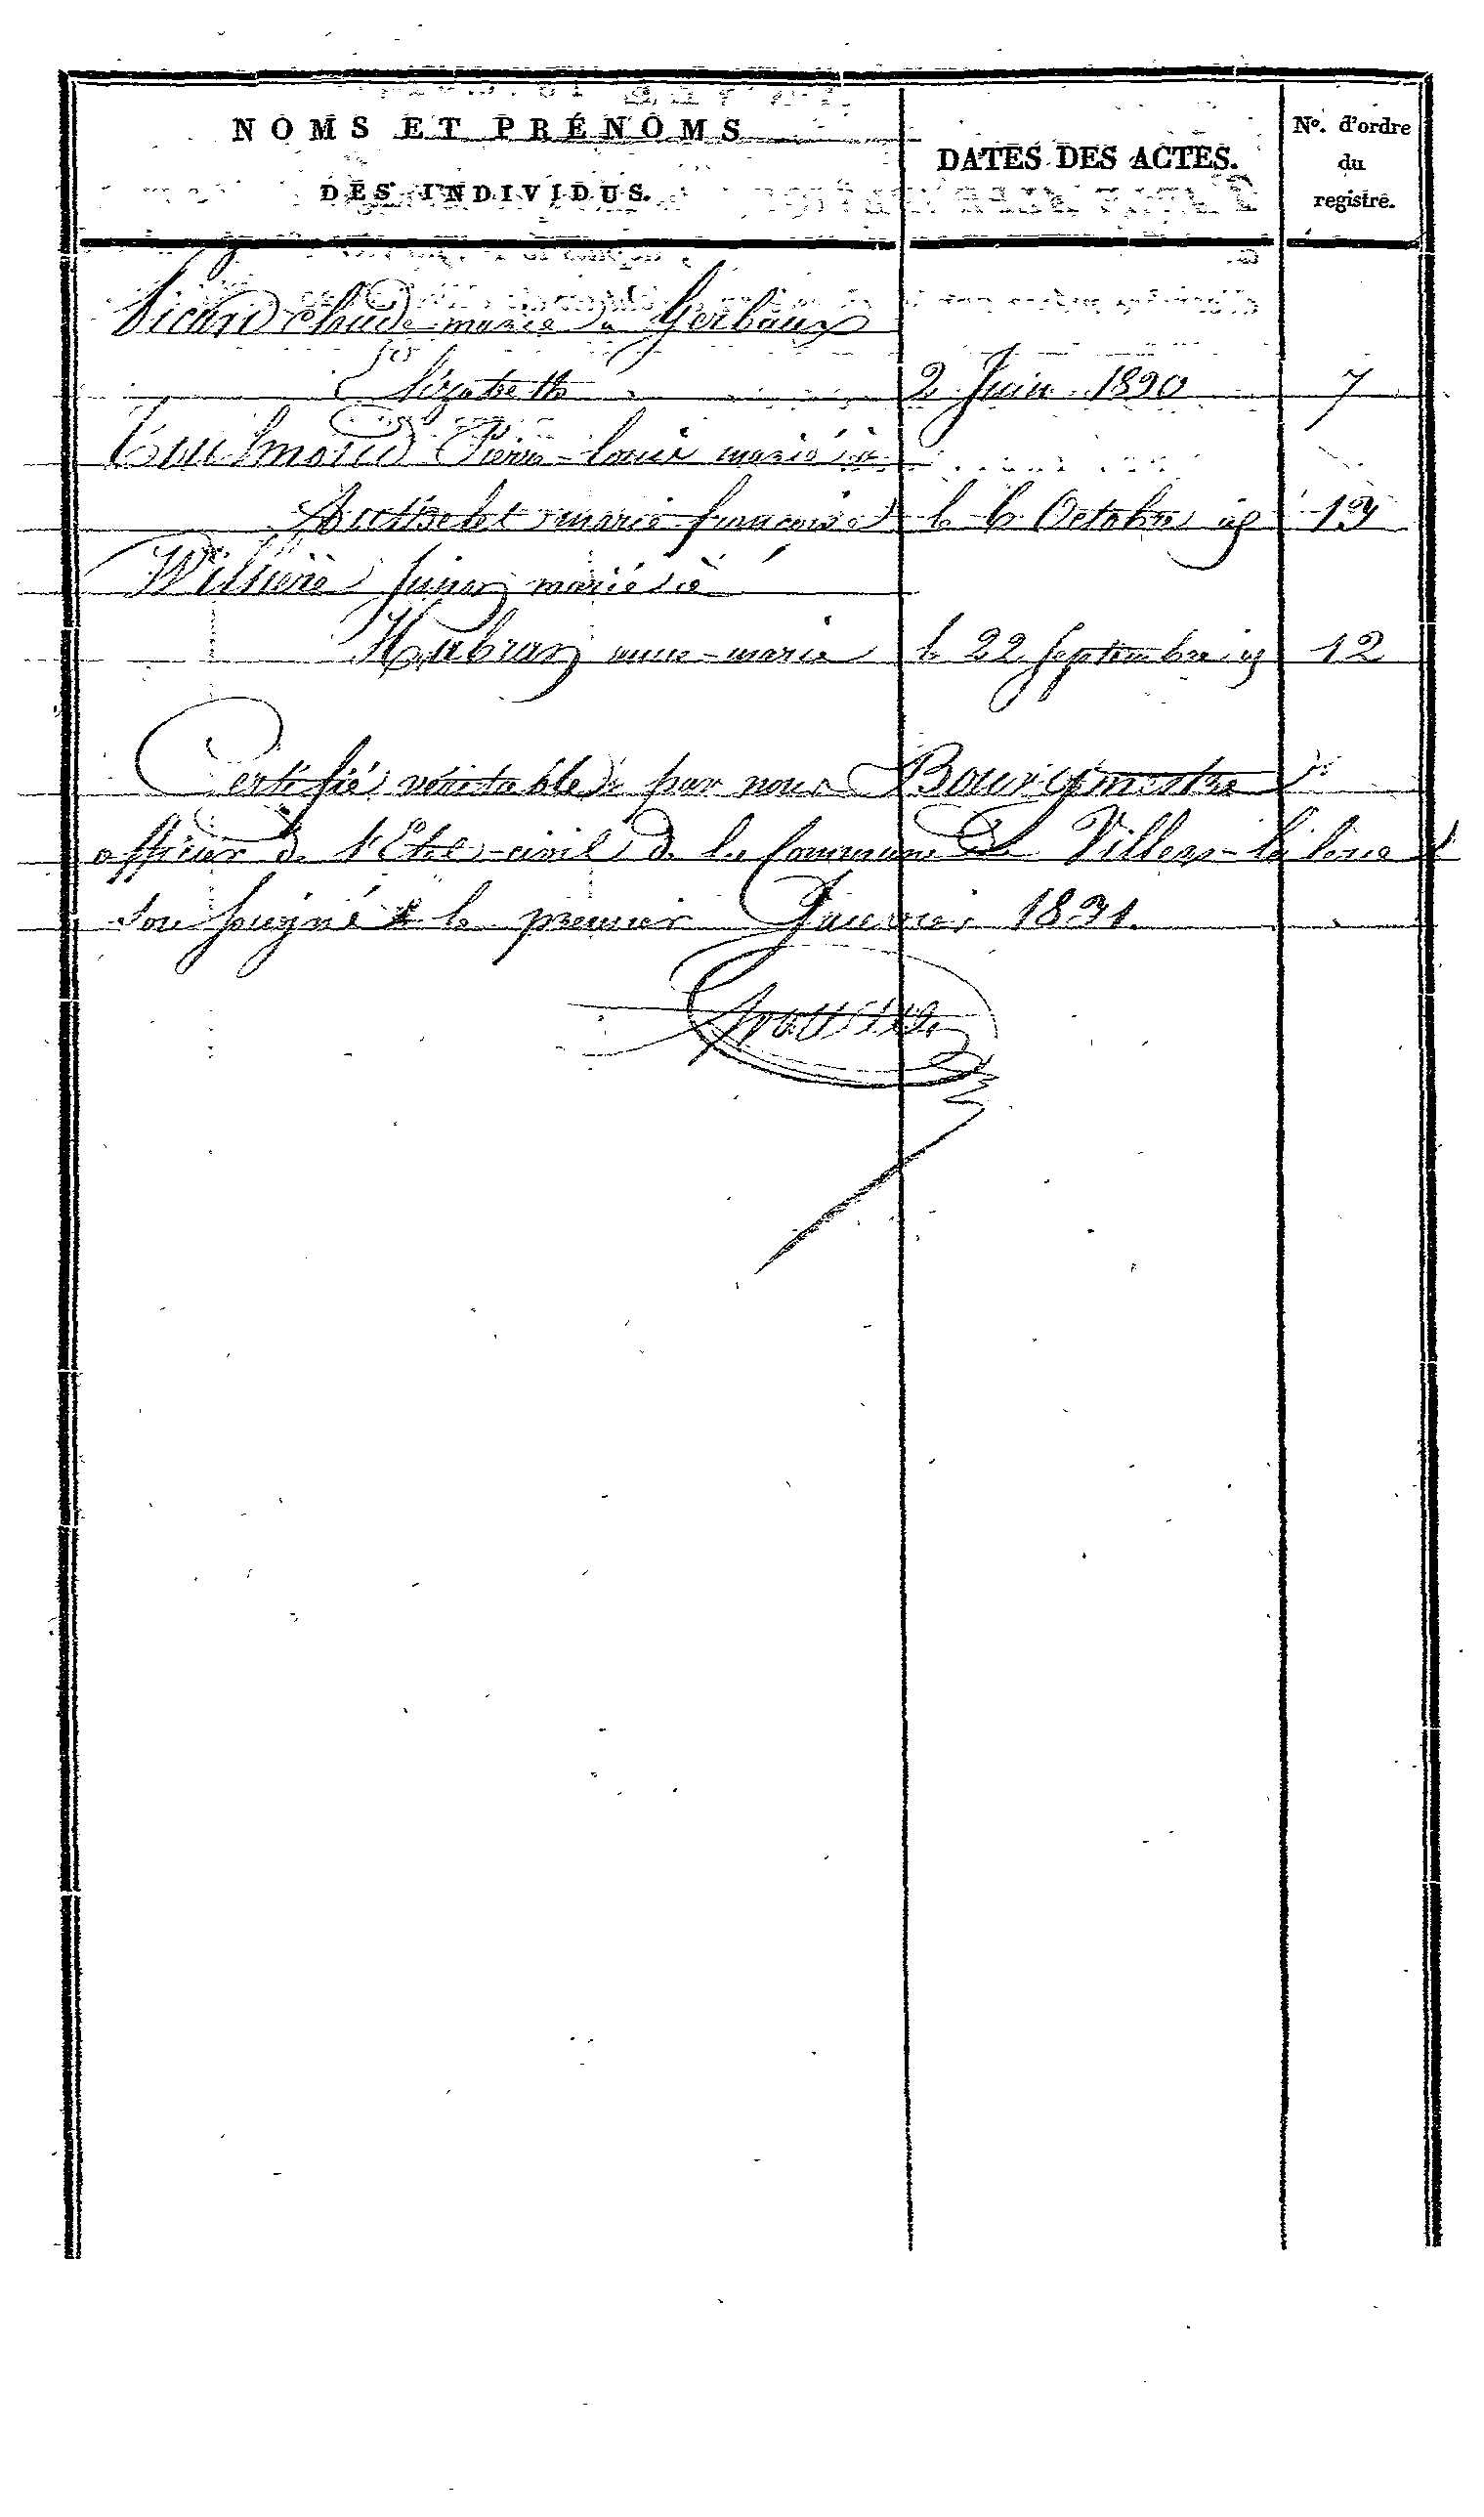 NOMS ET PRÉNOMS
DES INDIVIDUS.
DATES DES ACTES.
No. d'ordre
du
registre.
Vicard Claude marié à Gerbaux
Elizabeth 2 Juin 1890 7
Pierre-Louis marié à
marie françoise le 6 Octobre id 13
marié à
Habran anne-marie le 22 Septembre id 12
Certifié véritable par nous Bourgmestre
officier de l'Etat-civil de la Commune de Villers-la-loue
Soussigné le premier Janvier 1891.